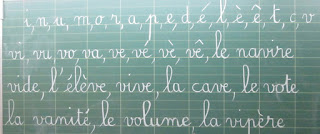 i, n, u, m, o, r, a, p, e, d, é, l, è, ê, t, c, v
vi, vu, vo, va, ve, vé, vè, vê, le navire
vide, l'élève, vive, la cave, le vote
la vanité, le volume, la vipère